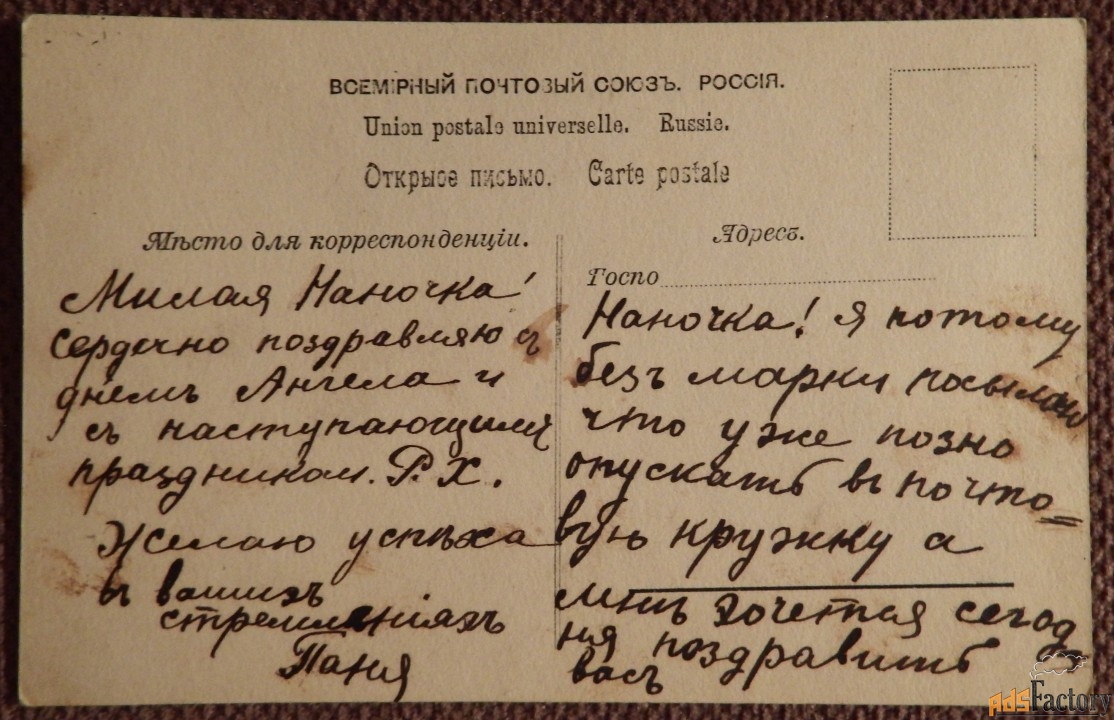 ВСЕМІРНЫЙ ПОЧТОВЫЙ СОЮЗЪ. РОССІЯ.
Union postale universelle. Russie.
Открытое письмо. Carte postale
Мѣсто для корреспонденціи.
Милая Наночка!
Сердечно поздравляю съ
днемъ Ангела и
съ наступающимъ
праздником. Р. Х.
Желаю успѣха
въ вашихъ
стремленіяхъ
Таня
Адресъ.
Госпо
Наночка! Я потому
безъ марки посылаю
что уже позно
опускать въ почто=
вую кружку а
мнѣ хочется сегод
ня поздравить
васъ
AdsFactory